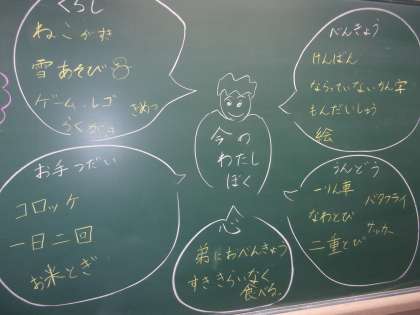 くらし
ねこがすき
雪あそび
ゲーム・レゴ
べんきょう
けんばん
ならっていないかん字
もんだいしゅう
絵
今の
わたし
ぼく
お手つだい
コロッケ
一日二回
お米とぎ
心
弟におべんきょう
すききらいなく
食べる。
うんどう
一りん車
バタフライ
なわとび
サッカー
二重とび